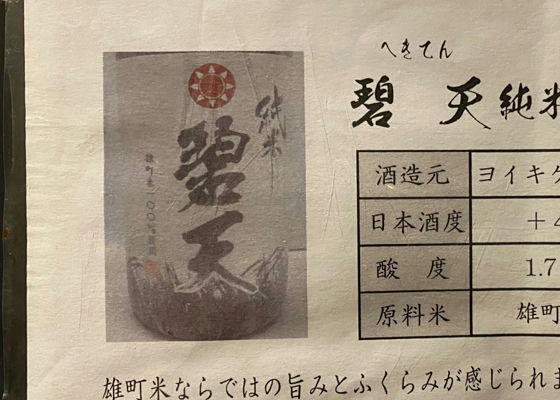 へきてん
碧天純米
純米
碧天
雄町米一〇〇%使用
酒造元 ヨイキゲ
日本酒度 +4
酸度 1.7
原料米 雄町
雄町米ならではの旨みとふくらみが感じられま